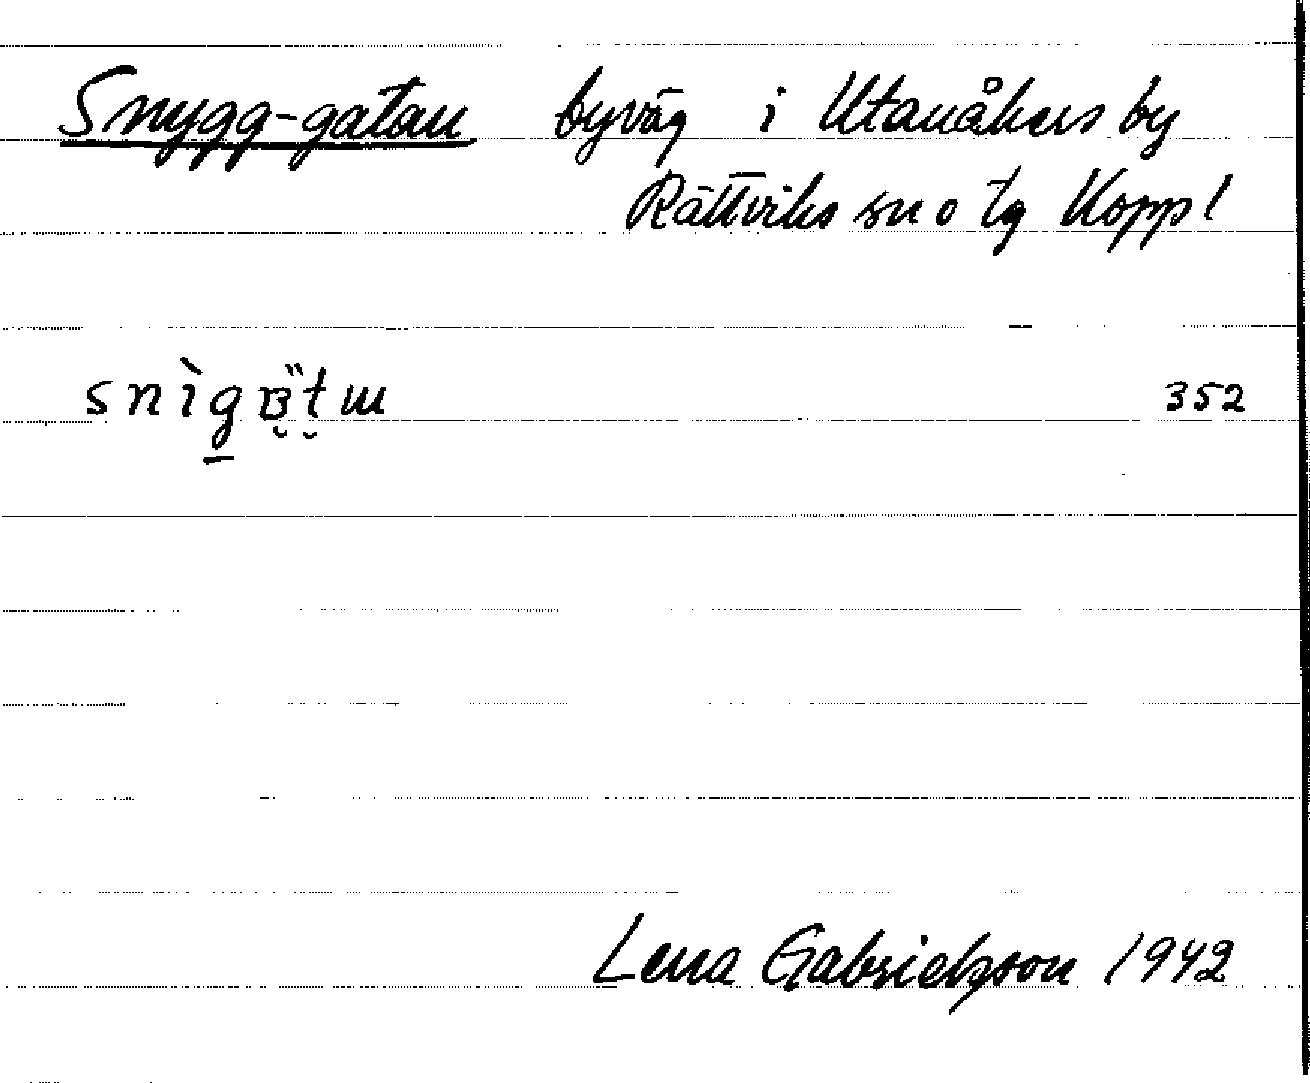 Snygg-gatan byväg i Utanåkers by
Rättviks sn o tg Koppl
352
Lena Gabrielsson 1942